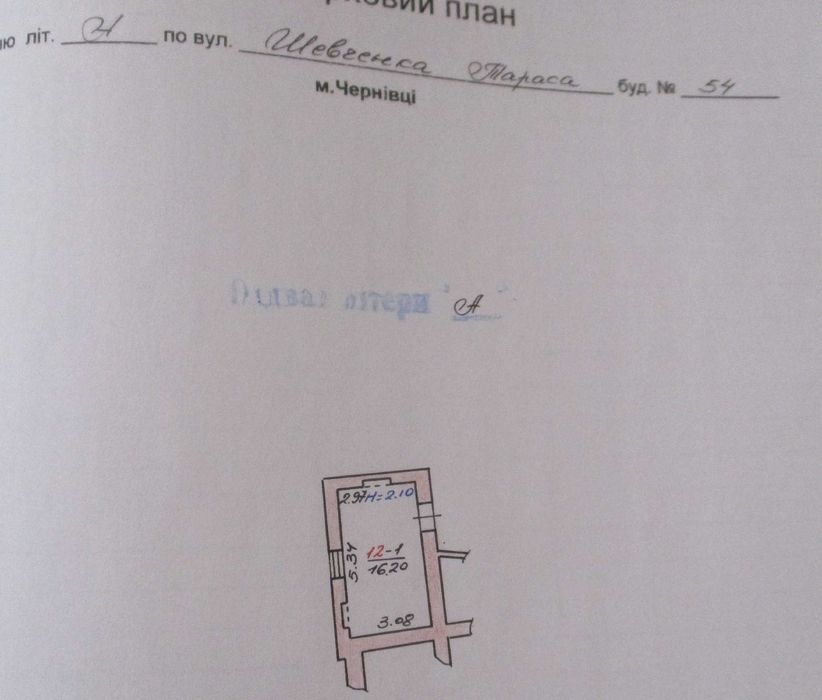 план
літ. А по вул. Шевченка Тараса буд. № 54
м.Чернівці
Підвал літери "А"
2.97 H=2.10
5.34
12-1
16.20
3.08